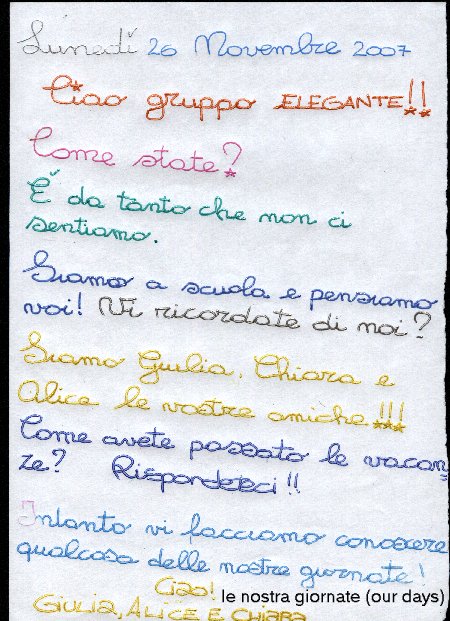 Lunedì 26 Novembre 2007
Ciao gruppo ELEGANTE!!
Come state?
È da tanto che non ci
sentiamo.
Siamo a scuola e pensiamo
voi! Vi ricordate di noi?
Siamo Giulia, Chiara e
Alice le vostre amiche!!!
Come avete passato le vacan-
ze? Rispondeteci!!
Intanto vi facciamo conoscere
qualcosa delle nostre giornate!
Ciao!
le nostra giornate (our days)
GIULIA, ALICE E CHIARA